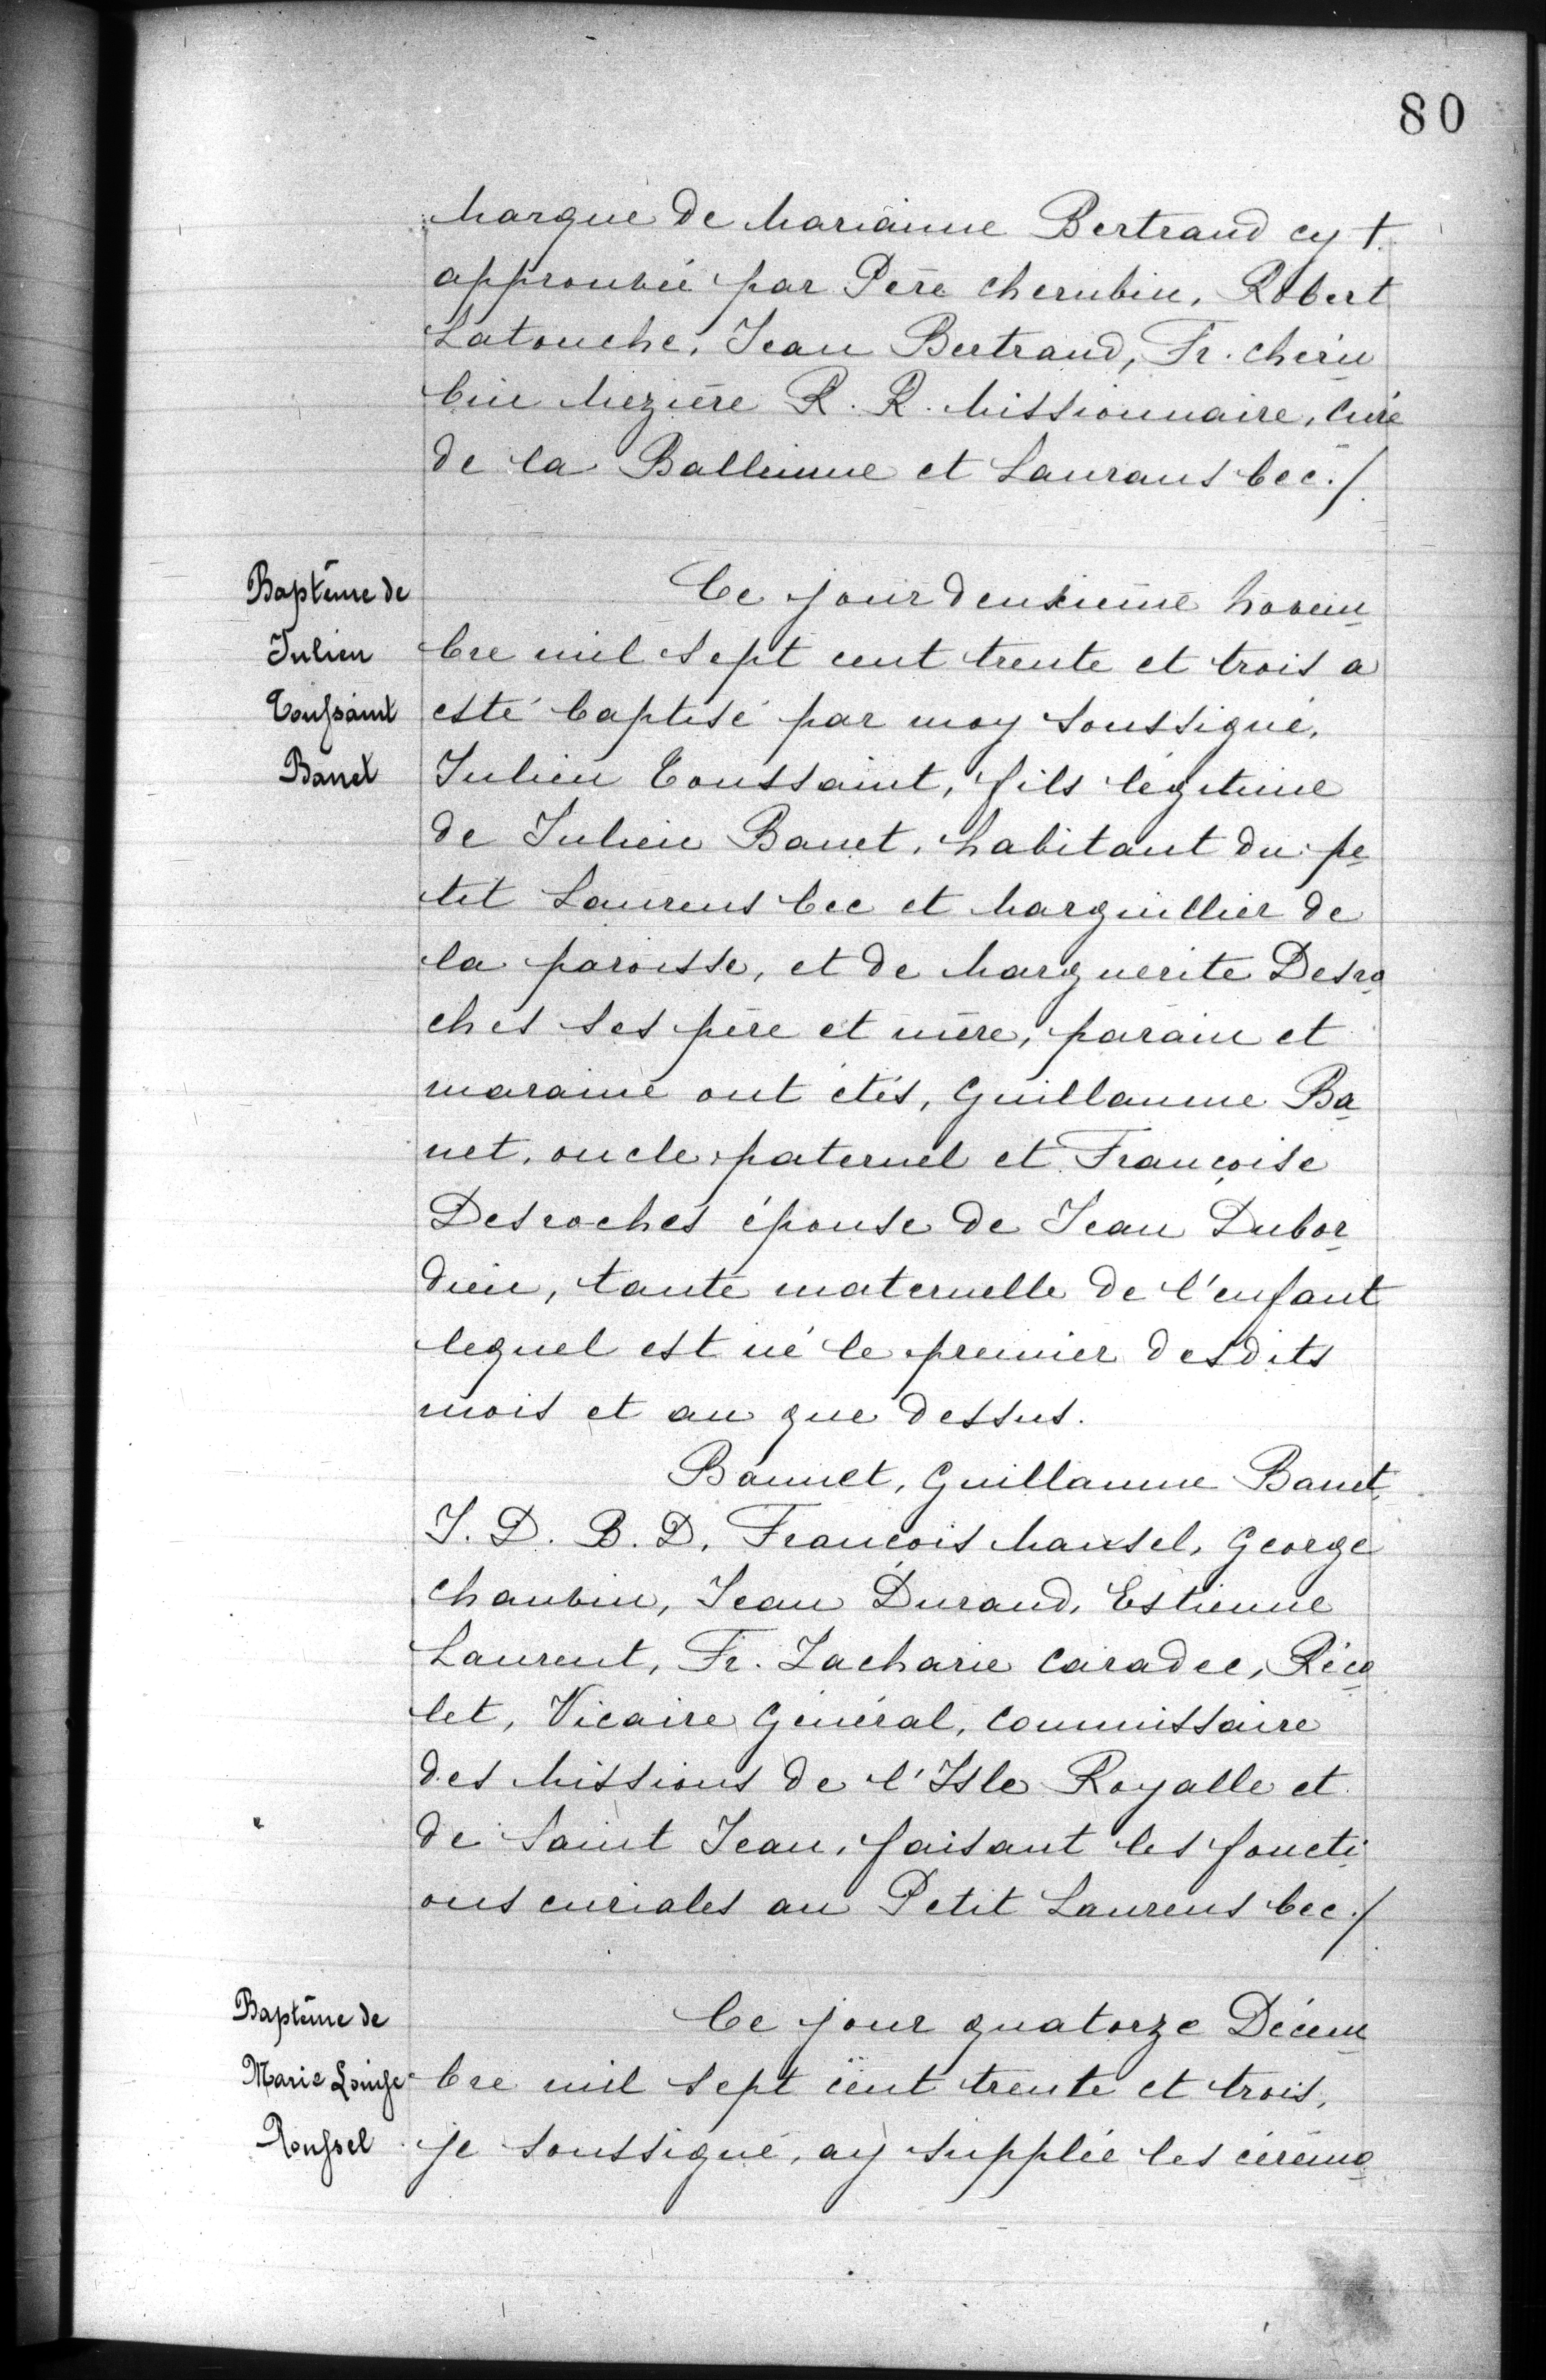 80
Marque de Marianne Bertrand cy †.
approuvée par Père Cherubin, Robert
Latouche, Jean Bertrand, Fr. Chéru
bin Mezière R. R. Missionnaire, Curé
de la Balleinne et Lauransbec./.
Baptême de
Julien
Toussaint
Banet
Ce jour deuxième Novem
bre mil sept cent trente et trois a
esté baptisé par moy soussigné,
Julien Toussaint, fils légitime
de Julien Banet, habitant du pe
tit Laurensbec et Marguillier de
la paroisse, et de Marguerite Desro
ches ses père et mère, parain et
maraine ont étés, Guillaume Ba
net, oncle paternel et Françoise
Desroches épouse de Jean Dubor
dieu, tante maternelle de l'enfant
lequel est né le premier desdits
mois et an que dessus.
Bannet, Guillaume Banet,
J. D. B. D, François Mansel, George
Chauvin, Jean Durand, Estienne
Laurent, Fr. Zacharie Caradec, Réco
let, Vicaire Général, Commissaire
des Missions de l'Isle Royalle et
de Saint Jean, faisant les foncti
ons curiales au Petit Laurensbec./
Baptême de
Marie Louise
Roussel
Ce jour quatorze Décem
bre mil sept cent trente et trois,
je soussigné, ay supplée les cérémo